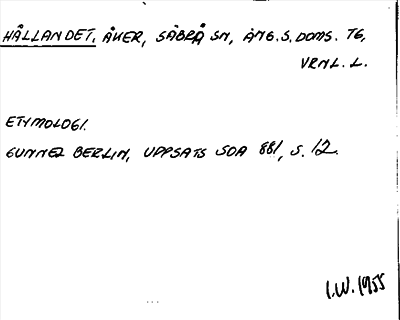 HÅLLANDET, ÅKER, SÄBRÅ SN, ÅNG.S.DOMS. TG,
VRNL. L.
ETYMOLOGI.
GUNNEL BERLIN, UPPSATS SOA 881, S. 12.
I.W. 1955